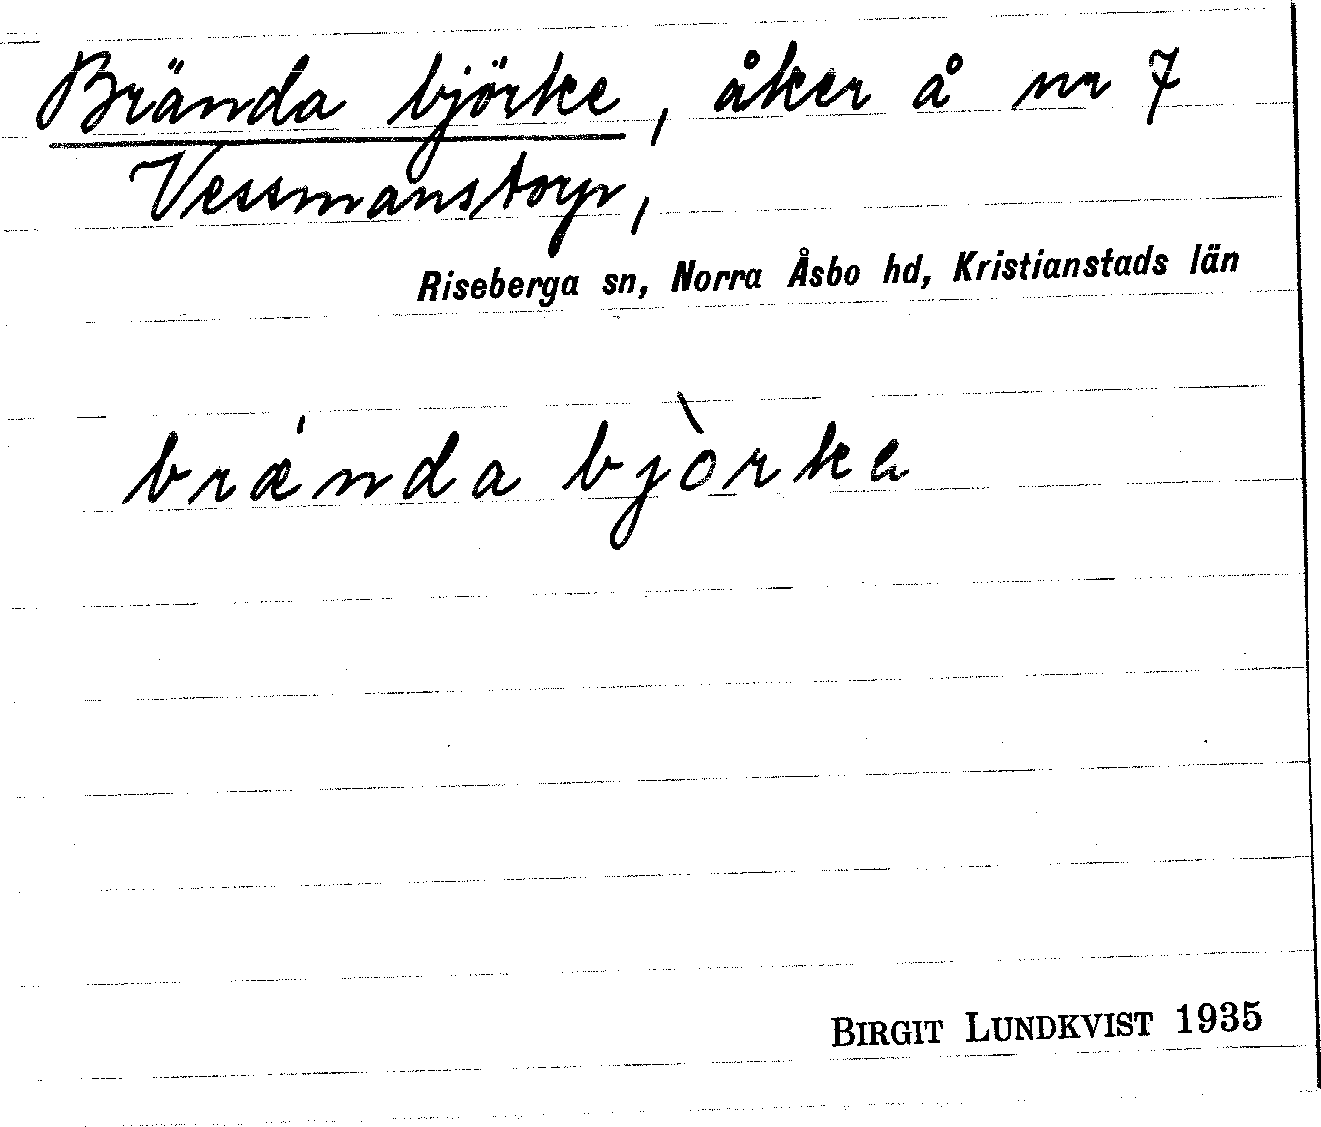 Brända björke, åker å nr 7
Vessmanstorp,
Riseberga sn, Norra Åsbo hd, Kristianstads län
brǽnda bjòrka
BIRGIT LUNDKVIST 1935